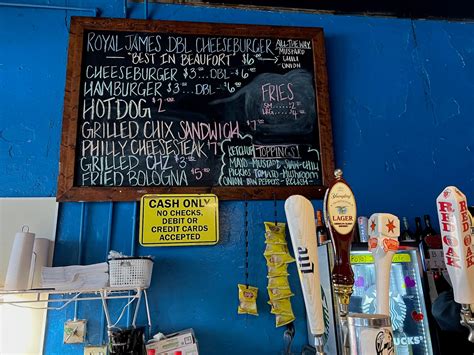 ROYAL JAMES DBL CHEESEBURGER
"BEST IN BEAUFORT" $6
ALL THE WAY
MUSTARD
CHILI
ONION
CHEESEBURGER $3 DBL $6
HAMBURGER $3 DBL $6
HOTDOG $2
GRILLED CHIX SANDWICH $7
PHILLY CHEESESTEAK $7
GRILLED CHZ $3
FRIED BOLOGNA $5
FRIES
SM. $2
LG. $4
KETCHUP TOPPINGS
MAYO MUSTARD SLAW CHILI
PICKLES TOMATO MUSHROOM
ONION PEPPERS RELISH
CASH ONLY
NO CHECKS,
DEBIT OR
CREDIT CARDS
ACCEPTED
LAGER
RED OAK
RED OAK